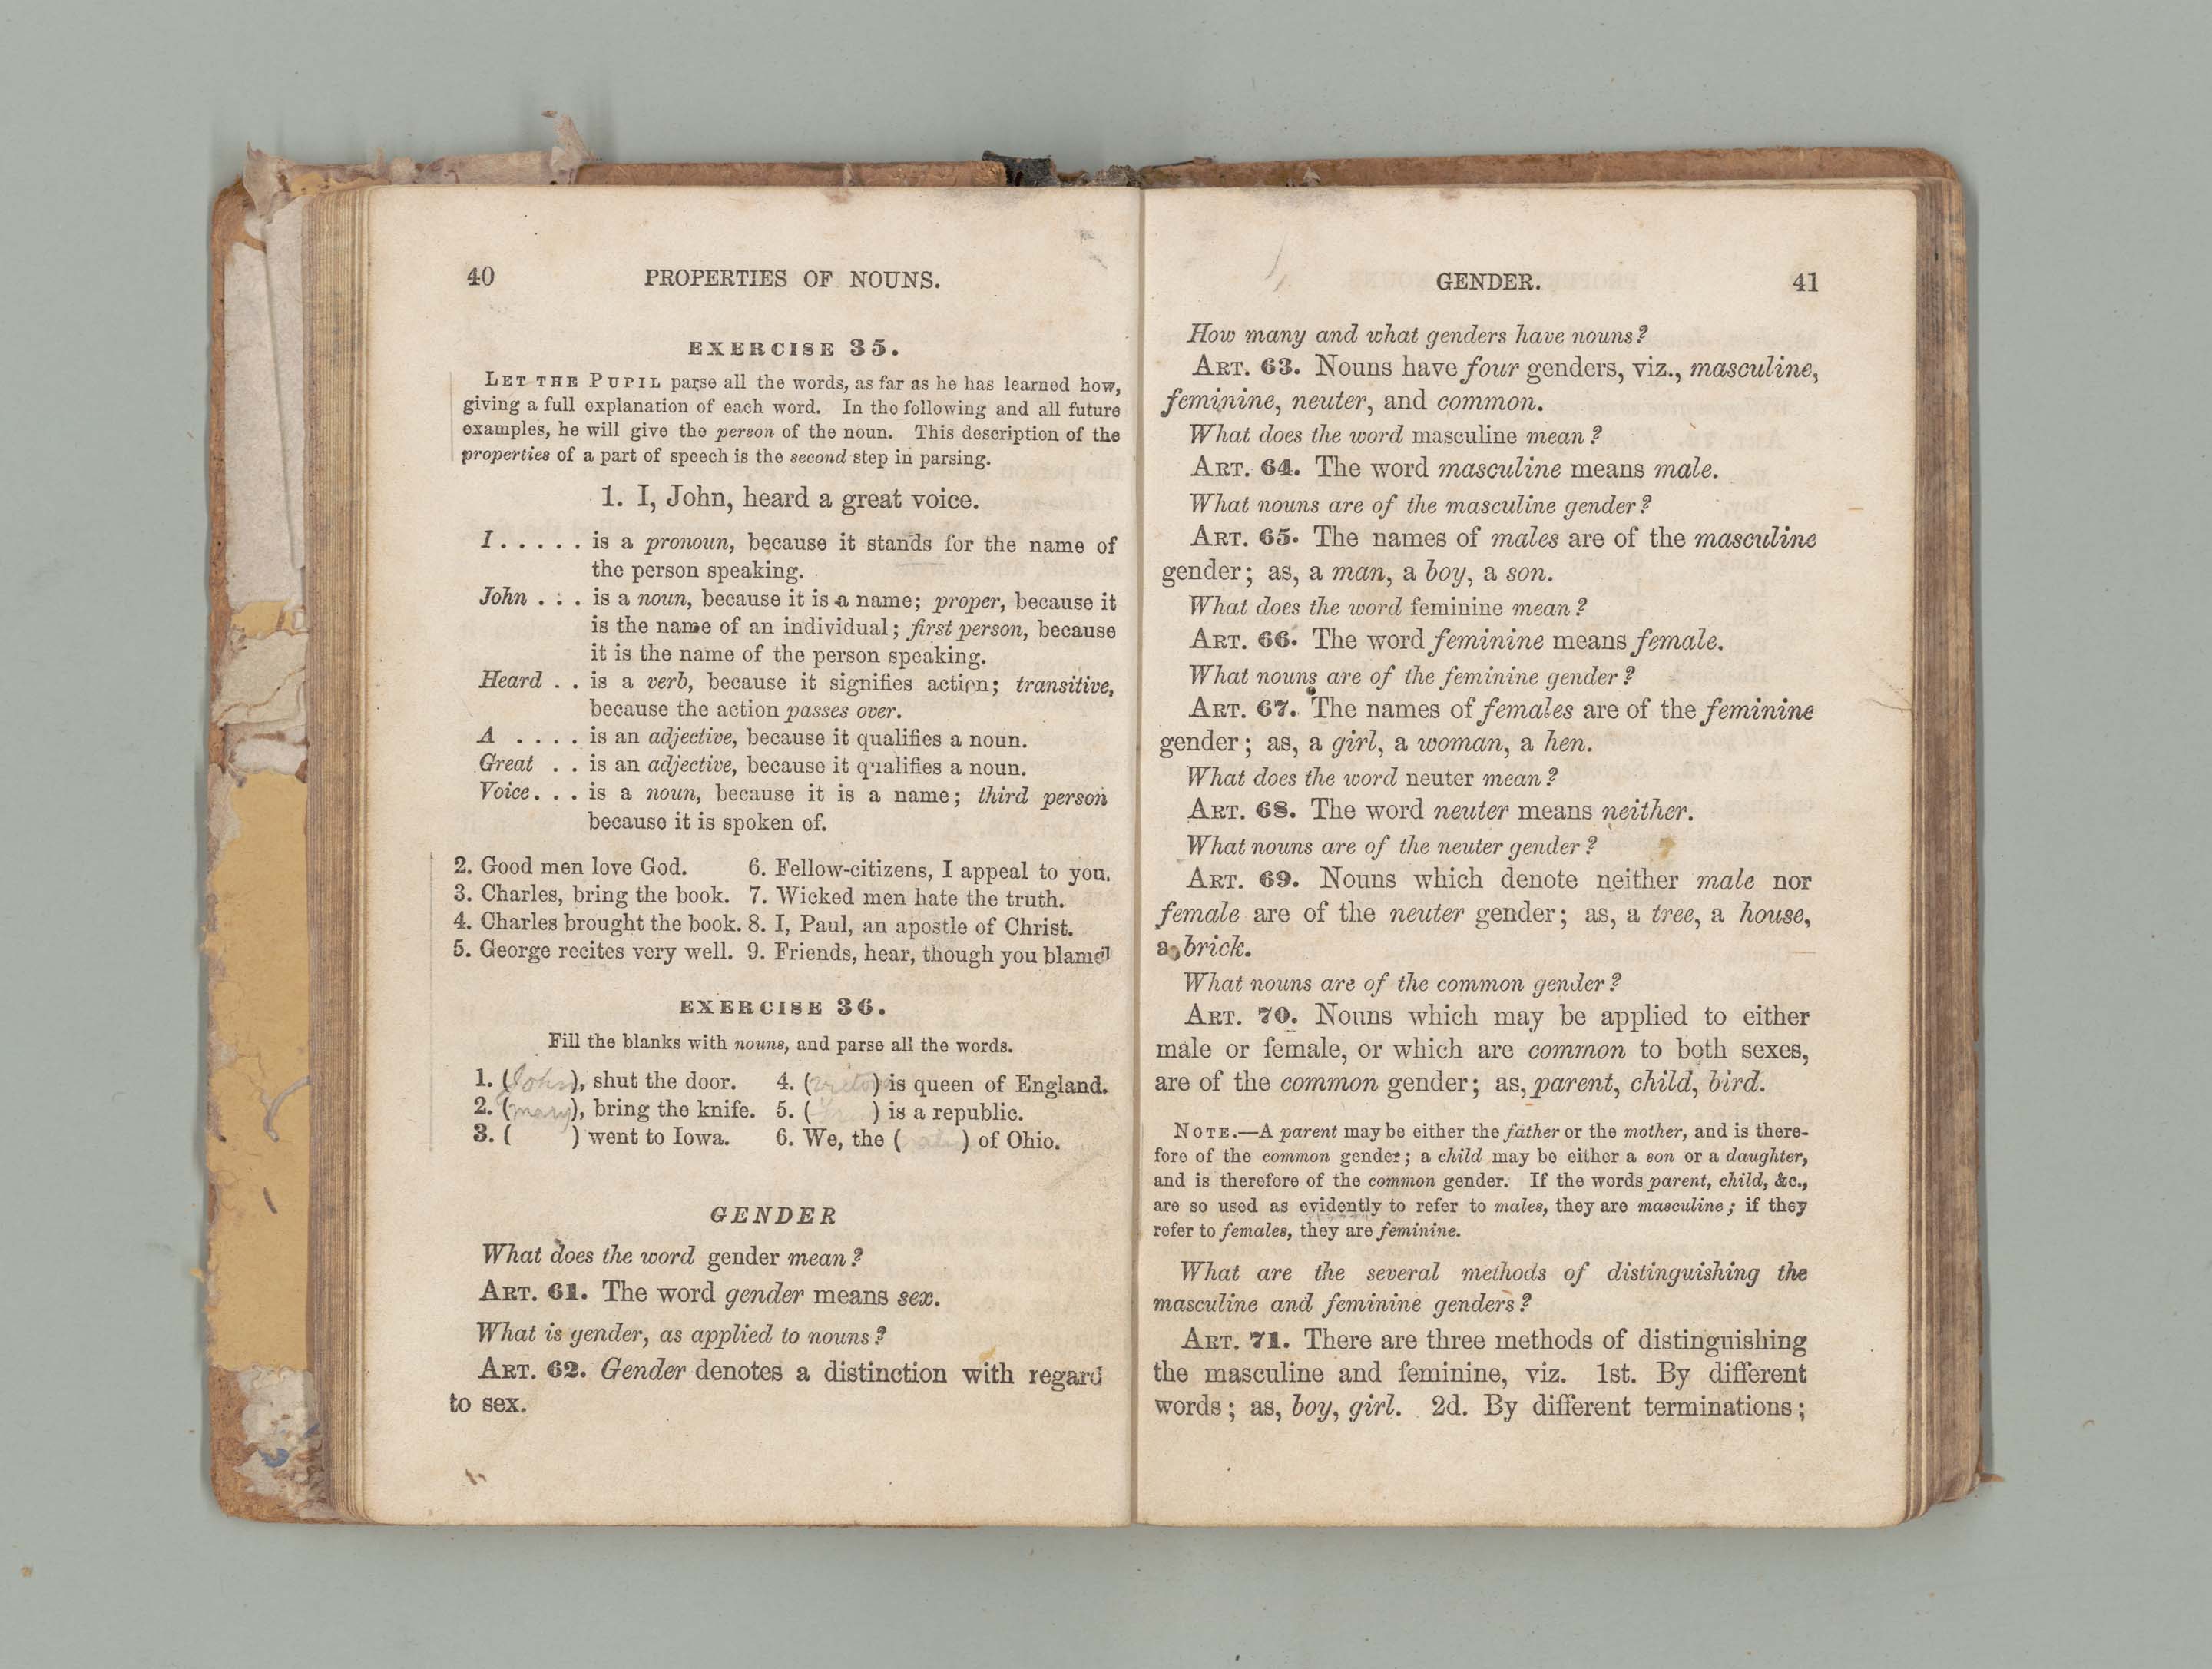 40 PROPERTIES OF NOUNS.
EXERCISE 35.
LET THE PUPIL parse all the words, as far as he has learned how,
giving a full explanation of each word. In the following and all future
examples, he will give the person of the noun. This description of the
properties of a part of speech is the second step in parsing.
1. I, John, heard a great voice.
I . . . . . is a pronoun, because it stands for the name of
the person speaking.
John . . . is a noun, because it is a name; proper, because it
is the name of an individual; first person, because
it is the name of the person speaking.
Heard . . is a verb, because it signifies action; transitive,
because the action passes over.
A . . . . is an adjective, because it qualifies a noun.
Great . . is an adjective, because it qualifies a noun.
Voice. . . is a noun, because it is a name; third person
because it is spoken of.
2. Good men love God. 6. Fellow-citizens, I appeal to you.
3. Charles, bring the book. 7. Wicked men hate the truth.
4. Charles brought the book. 8. I, Paul, an apostle of Christ.
5. George recites very well. 9. Friends, hear, though you blame
EXERCISE 36.
Fill the blanks with nouns, and parse all the words.
1. (John), shut the door. 4. ( ) is queen of England.
2. (mary), bring the knife. 5. ( ) is a republic.
3. ( ) went to Iowa. 6. We, the ( ) of Ohio.
GENDER
What does the word gender mean?
ART. 61. The word gender means sex.
What is gender, as applied to nouns?
ART. 62. Gender denotes a distinction with regard
to sex.
GENDER. 41
How many and what genders have nouns?
ART. 63. Nouns have four genders, viz., masculine,
feminine, neuter, and common.
What does the word masculine mean?
ART. 64. The word masculine means male.
What nouns are of the masculine gender?
ART. 65. The names of males are of the masculine
gender; as, a man, a boy, a son.
What does the word feminine mean?
ART. 66. The word feminine means female.
What nouns are of the feminine gender?
ART. 67. The names of females are of the feminine
gender; as, a girl, a woman, a hen.
What does the word neuter mean?
ART. 68. The word neuter means neither.
What nouns are of the neuter gender?
ART. 69. Nouns which denote neither male nor
female are of the neuter gender; as, a tree, a house,
a brick.
What nouns are of the common gender?
ART. 70. Nouns which may be applied to either
male or female, or which are common to both sexes,
are of the common gender; as, parent, child, bird.
NOTE.—A parent may be either the father or the mother, and is there-
fore of the common gender; a child may be either a son or a daughter,
and is therefore of the common gender. If the words parent, child, &c.,
are so used as evidently to refer to males, they are masculine; if they
refer to females, they are feminine.
What are the several methods of distinguishing the
masculine and feminine genders?
ART. 71. There are three methods of distinguishing
the masculine and feminine, viz. 1st. By different
words; as, boy, girl. 2d. By different terminations;